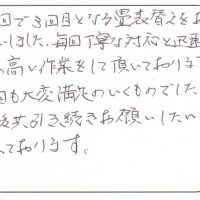 回で3回目となる畳表替えをお
いしました。毎回丁寧な対応と迅速
の高い作業をして頂いております
回も大変満足のいくものでした
後共引き続きお願いしたい
っております。